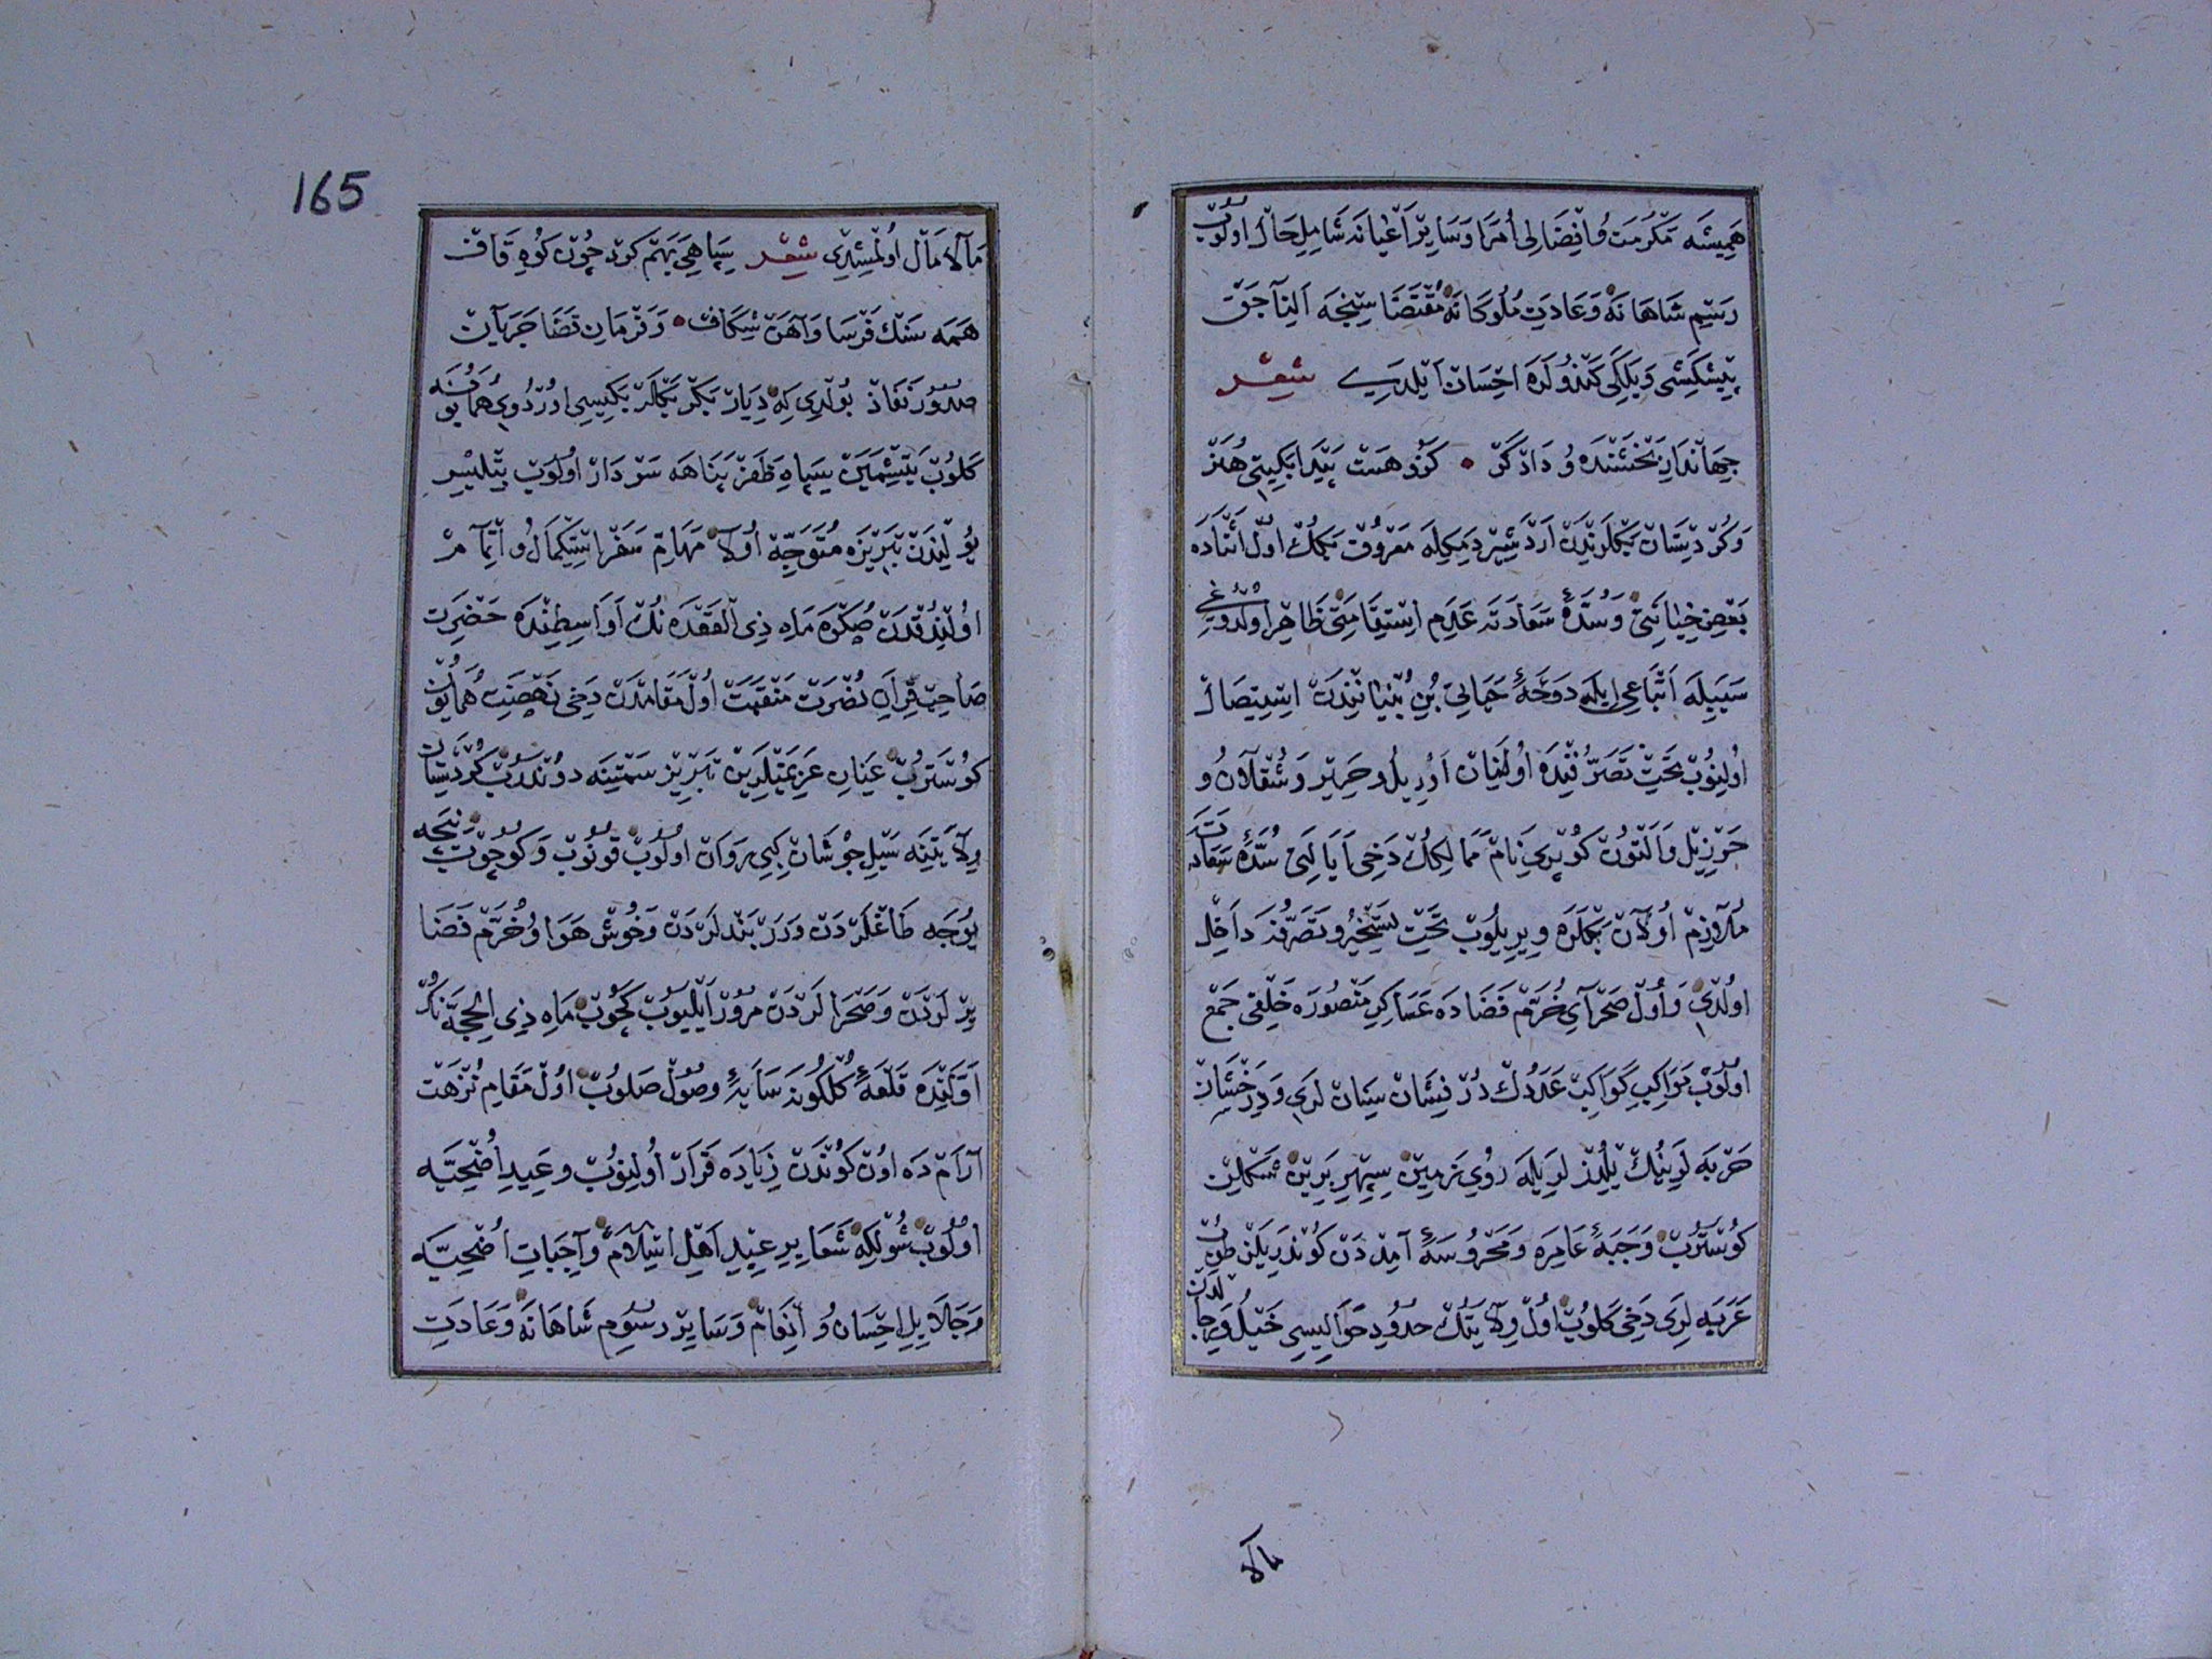 هَمِيشَه مَكْرُمَت وُ اِفْضَالِی اُمَرَا وَسَايِرْ اَعْيَانَه شَامِلِ حَالْ اولُوبْ
رَسْمِ شَاهَانَه وَعَادَتِ مُلُوكَانَه مُقْتَضَاسِنْجَه اَلِنَاجَقْ
پِيشْكَشِی وَبَلَكِی كَنْدُولَرَه اِحْسَانْ اَيْلَدِی شِعْر
جِهَانْدَارِ بَخْشَنْدَه وُ دَادْكَرْ • كَزُو هَسْت پَيْدَا بَكِيتِی هُنَرْ
وَكُرْدِسْتَانْ بَكْلَرِنْدَنْ اَرْدَشِيرْ دِيمَكِلَه مَعْرُوفْ بَكُكْ اولْ اَثْنَادَه
بَعْضِ خِيَانَتِی وَسُدَّۀ سَعَادَتَه عَدَمِ اِسْتِقَامَتِی ظَاهِرْ اولْدُوغِی
سَبَبِيلَه اَتْبَاعِی ايلَه دَوْحَۀ حَيَاتِی بُنِ بُنْيَانِنْدَنْ اِسْتِيصَالْ
اُولِنُوبْ تَحْتِ تَصَرُّفِنْدَه اُولِنَانْ
وَالْتُونْ كُوپْرِی نَامْ مَمَالِكُكْ دَخِی اَيَالَتِی سُدَّۀ سَعَادَتَه
مُلَازِمْ اُولَانْ بَكْلَرَه وِيرِيلُوبْ تَحْتِ تَسْخِيرْ وتَصَرُّفَه دَاخِلْ
اولْدِی وَاُولْ صَحْرَایِ خُرَّمْ فَضَادَه عَسَاكِرِ مَنْصُورَه خَلْقِی جَمْعْ
اولُوبْ مَوَاكِبِ كَوَاكِبْ عَدَدُكْ دُرْ فِشَانْ سِنَانْ لَرِی وَدِرَخْشَانْ
حَرْبَه لَرِينُكْ يِلْدِزْلَرِيلَه رُویِ زَمِينْ سِپِهْرِ بَرِينْ شَكْلِينْ
كُوسْتَرُبْ وَجَبَۀ عَامِرَه وَمَحْرُوسَۀ آمِدْ دَنْ كُونْدَرِيلَنْ طُوبْ
عَرَبَه لَرِی دَخِی كَلُوبْ اُولْ وِلَايَتُكْ حُدُودِ حَوَالِيسِی خَيْلُ وَرِجَالْدَنْ
مالا
165
مَالَامَالْ اُولْمِشِدِی شِعْر سِپَاهِی بَهَمْ كَرْد چُونْ كُوهِ قَافْ
هَمَه سَنْكْ فَرْسَا وَآهَنْ شِكَافْ • وَفَرْمَانِ قَضَا جَرَيَانْ
صُدُورْ نَفَاذْ بُولْدِی كِه دِيَارْ بَكْرْ بَكْلَرْ بَكِيسِی اُورْدُویِ هُمَايُونَه
كَلُوبْ يَتِشْمَيَنْ سِپَاهِ ظَفَرْ پَنَاهَه سَرْدَارْ اُولُوبْ بِتْلِيسْ
يُولِنْدَنْ تَبْرِيزَه مُتَوَجِّه اُولَا مَهَامِّ سَفَرْ اِسْتِكْمَالْ وُ اِتْمَامْ
اُولِنْدُقْدَنْ صُكْرَه مَاهِ ذِی الْقَعْدَه نُكْ اَوَاسِطِنْدَه حَضْرَتِ
صَاحِبْ قِرَانِ نُصْرَتْ مَنْقَبَتْ اُولْ مَقَامْدَنْ دَخِی نَهْضَتِ هُمَايُونْ
كُوسْتَرُبْ عِنَانِ عَزِيمَتْلَرِينْ تَبْرِيزْ سَمْتِينَه دونْدَرُبْ كُرْدِسْتَانْ
وِلَايَتِنَه سَيْلِ جُوشَانْ كِبِی رَوَانْ اولُوبْ قونُوبْ وَكوچُوبْ نِيچَه
يُوجَه طَاغْلَرْدَنْ ودَرْبَنْدلَرْدَنْ وَخُوشْ هَوَا وُخُرَّمْ فَضَا
يِرْ لَرْدَنْ وَصَحْرَالَرْدَنْ مرُورْ اَيْلِيُوبْ كَچُوبْ مَاهِ ذِی الْحِجَّه نُكْ
اَوَّلِنْدَه قَلْعَۀ وصُولْ صَلُوبْ اُولْ مَقَامِ نُزْهَتْ
آرَامْ دَه اونْ كُونْدَنْ زِيَادَه قَرَارْ اُولِنُوبْ وعِيدِ اُضْحِيَّه
اولُوبْ شُولْكِه شَعَايِرِ عِيدِ اَهْلِ اِسْلَامْ وَاجِبَاتِ اُضْحِيَّه
وَجَلَايِلِ اِحْسَان وُ اِنْعَامْ وَسَايِرْ رسُومِ شَاهَانَه وَعَادَتِ